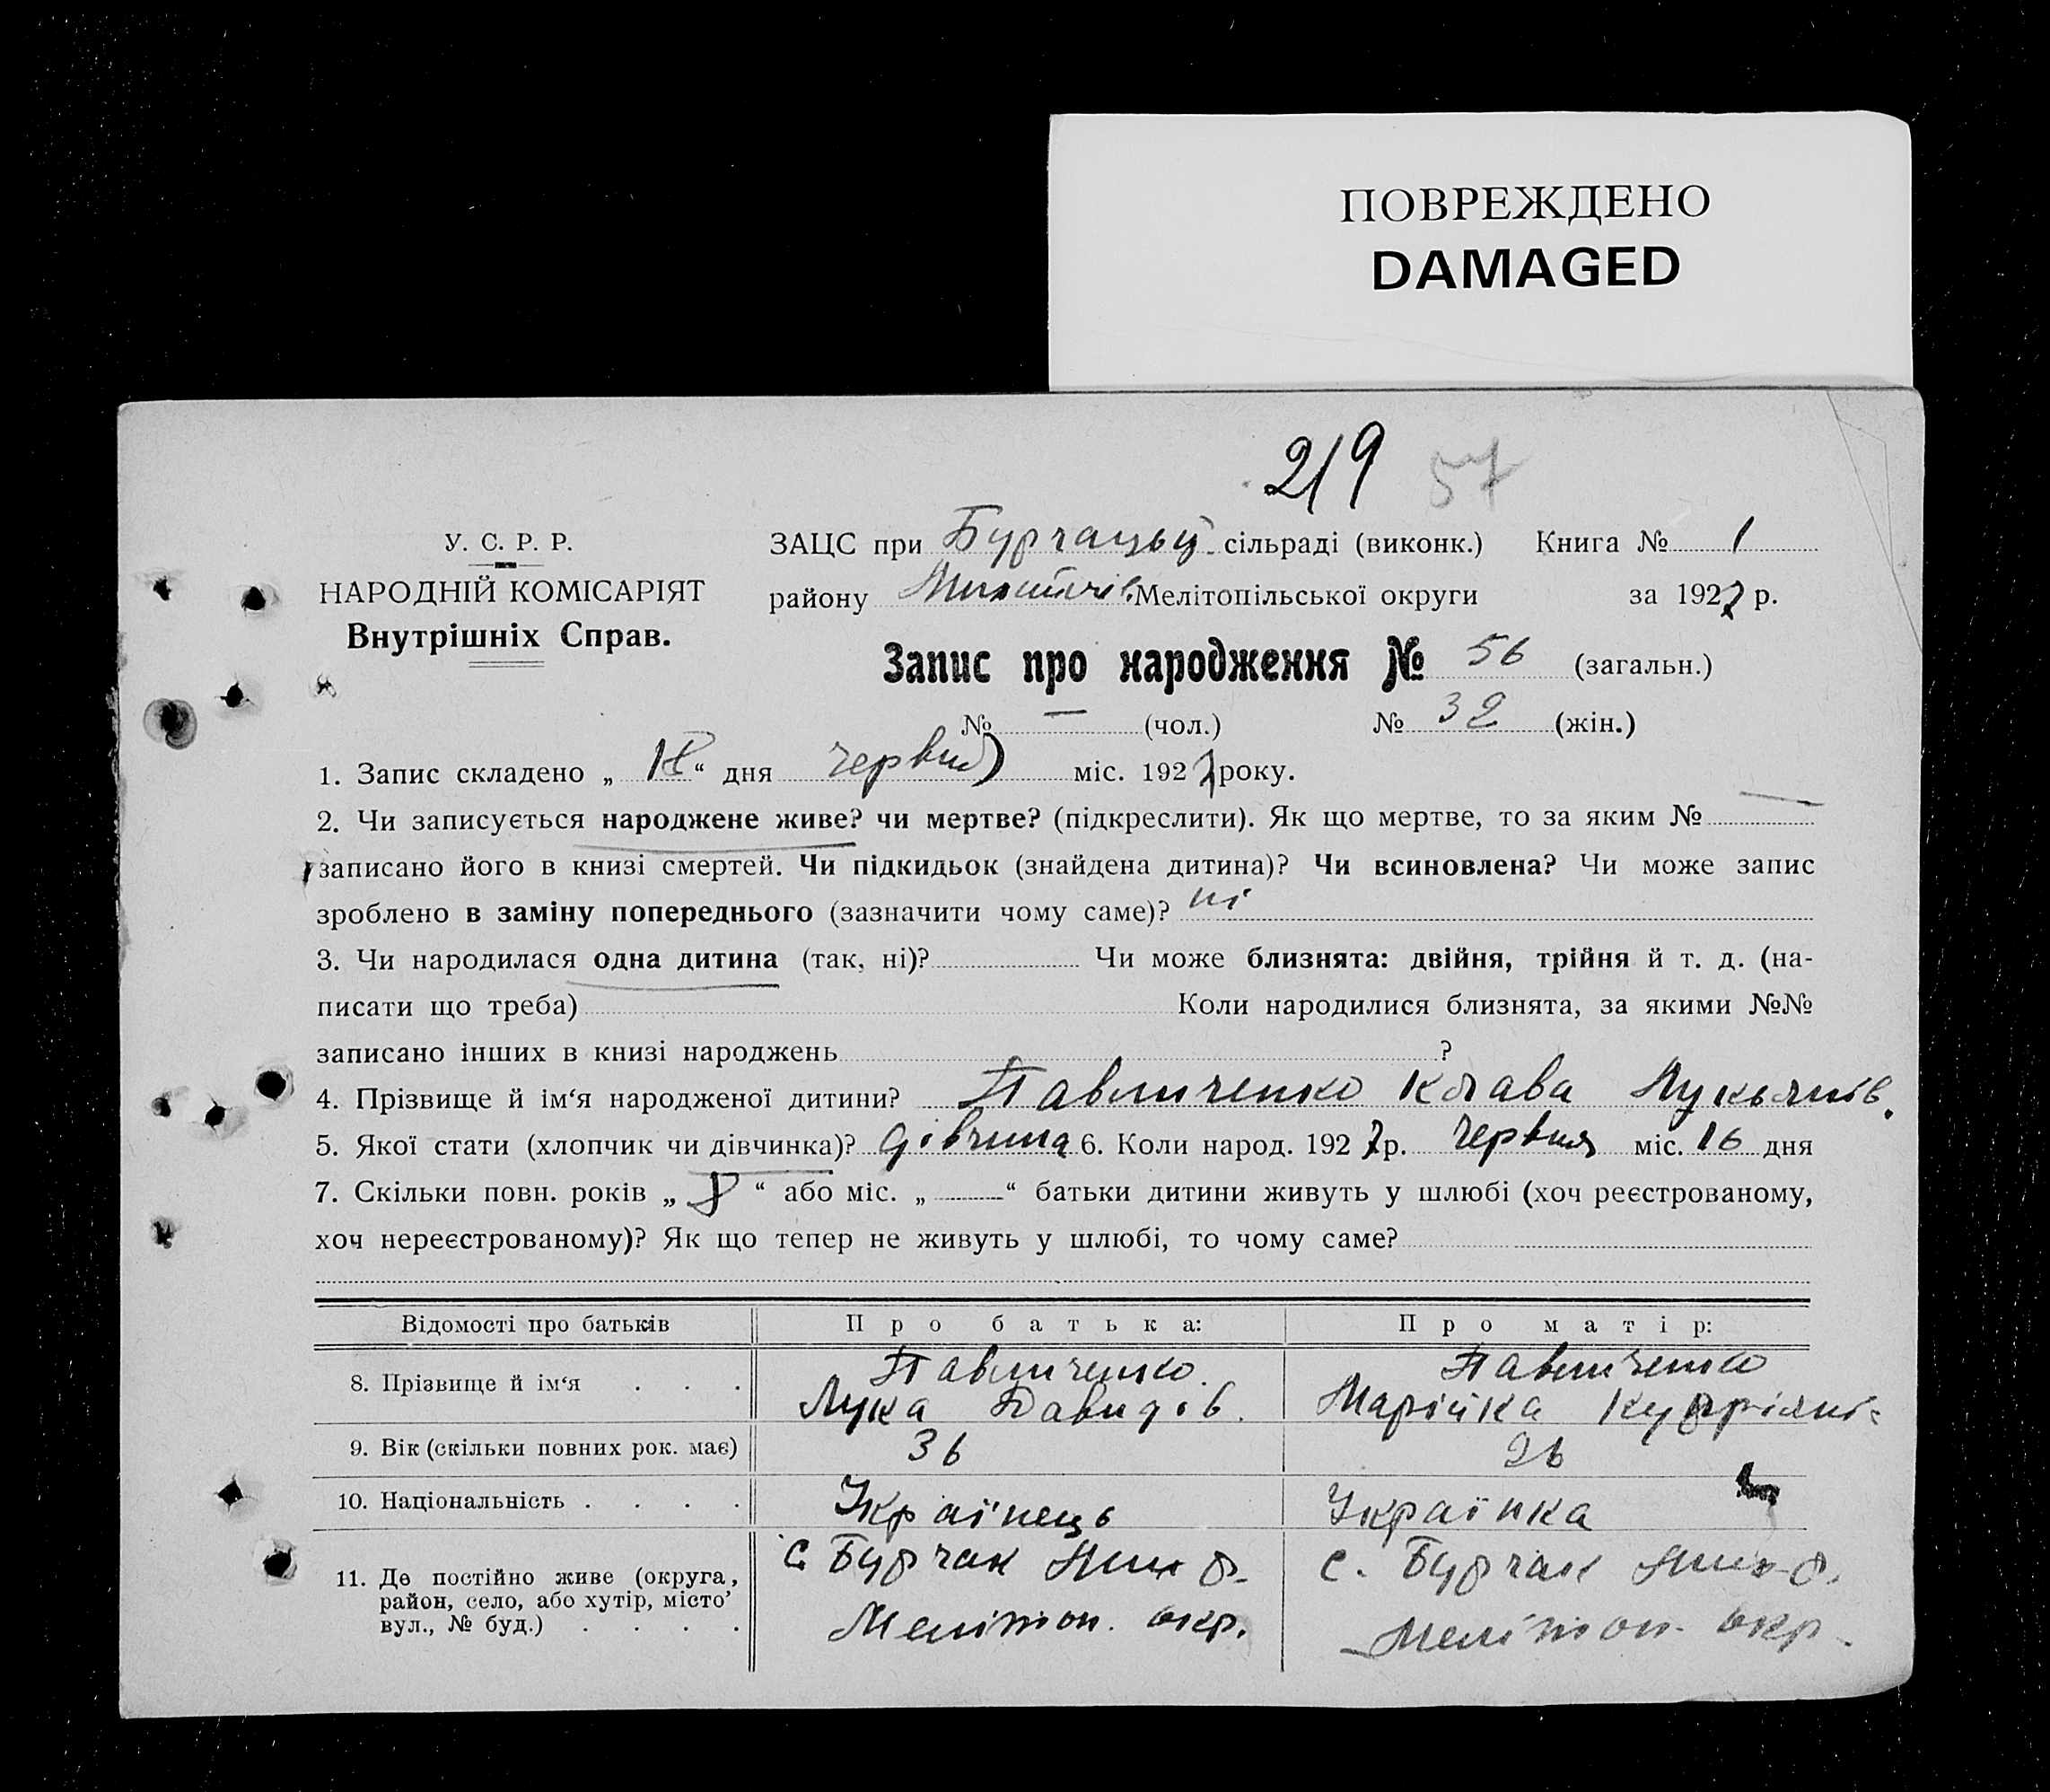 ПОВРЕЖДЕНО
DAMAGED
219 57
У. С. Р. Р.
НАРОДНІЙ КОМІСАРІЯТ
Внутрішніх Справ.
ЗАЦС при Бурчацькій сільраді (виконк.) Книга № 1
району Мелітопільської округи за 1927 р.
Запис про народження № 56 (загальн.)
№ — (чол.) № 32 (жін.)
1. Запис складено „ 18 “ дня червня міс. 1927 року.
2. Чи записується народжене живе? чи мертве? (підкреслити). Як що мертве, то за яким № —
записано його в книзі смертей. Чи підкидьок (знайдена дитина)? Чи всиновлена? Чи може запис
зроблено в заміну попереднього (зазначити чому саме)? ні
3. Чи народилася одна дитина (так, ні)? Чи може близнята: двійня, трійня й т. д. (на-
писати що треба) Коли народилися близнята, за якими №№
записано інших в книзі народжень ?
4. Прізвище й ім‘я народженої дитини? Павличенко Клава Лукьянів.
5. Якої стати (хлопчик чи дівчинка)? дівчина 6. Коли народ. 1927 р. червня міс. 16 дня
7. Скільки повн. років „ 8 “ або міс. „ — “ батьки дитини живуть у шлюбі (хоч реєстрованому,
хоч нереєстрованому)? Як що тепер не живуть у шлюбі, то чому саме?
Відомості про батьків Про батька: Про матір:
8. Прізвище й ім‘я . . . Павличенко. Лука Давидів. Павличенко Марійка Купріяні-
9. Вік (скільки повних рок. має) 36 26
10. Національність . . . . Українець Українка
11. Де постійно живе (округа, с. Бурчак Мих р. с. Бурчак Мих-р.
район, село, або хутір, місто’ Мелітоп. окр. Мелітоп. окр.
вул., № буд.) . . . .